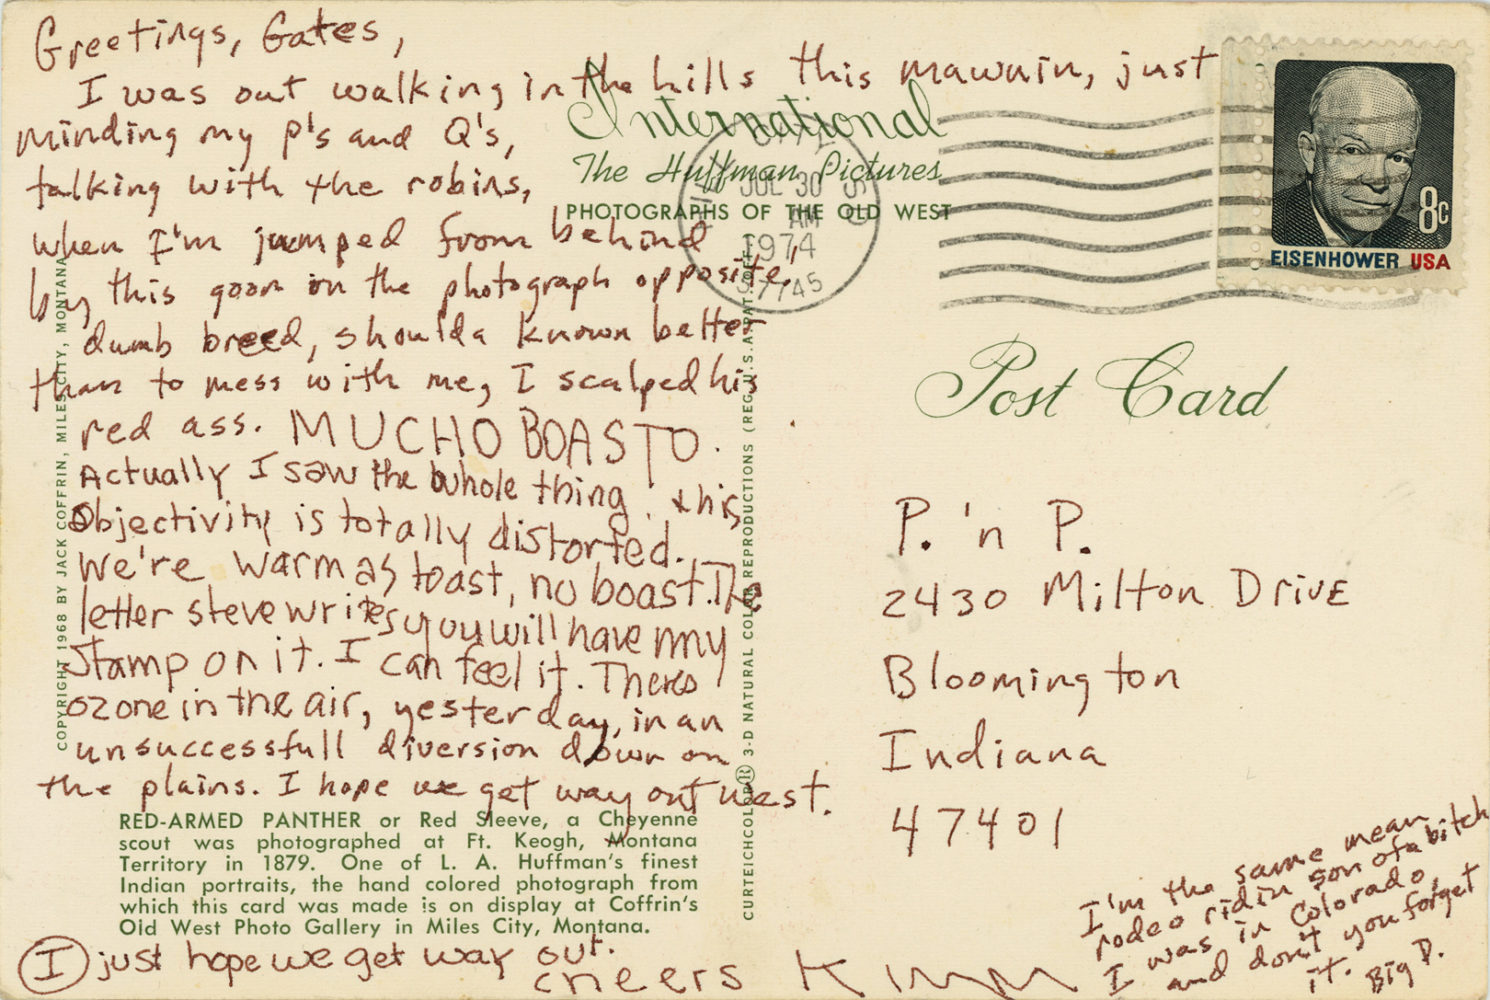 Greetings, Gates,
I was out walking in the hills this mawnin, just
minding my p's and Q's,
talking with the robins,
when I'm jumped from behind
by this goon on the photograph opposite,
dumb breed, shoulda known better
than to mess with me, I scalped his
red ass. MUCHO BOASTO.
Actually I saw the whole thing. this
Objectivity is totally distorted.
We're warm as toast, no boast. The
letter steve writes you will have my
stamp on it. I can feel it. Theres
ozone in the air, yesterday, in an
unsuccessfull diversion down on
the plains. I hope we get way out west.
I just hope we get way out.
cheers Kimm
International
The Huffman Pictures
PHOTOGRAPHS OF THE OLD WEST
JUL 30
AM
1974
57745
8c
EISENHOWER USA
Post Card
P. 'n P.
2430 Milton Drive
Bloomington
Indiana
47401
I'm the same mean
rodeo ridin son of a bitch
I was in Colorado,
and don't you forget
it. Big D.
COPYRIGHT 1968 BY JACK COFFRIN, MILES CITY, MONTANA
CURTEICHCOLOR® 3-D NATURAL COLOR REPRODUCTIONS (REG. U.S.A. PAT. OFF.)
RED-ARMED PANTHER or Red Sleeve, a Cheyenne
scout was photographed at Ft. Keogh, Montana
Territory in 1879. One of L. A. Huffman's finest
Indian portraits, the hand colored photograph from
which this card was made is on display at Coffrin's
Old West Photo Gallery in Miles City, Montana.